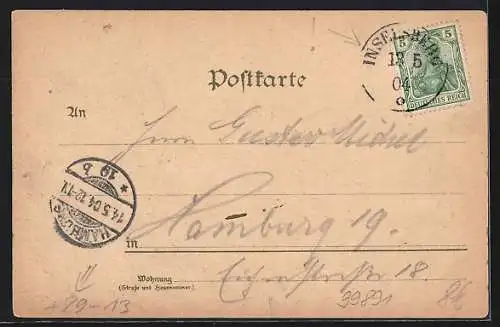 INSELSBERG
13 5
04
5 5
DEUTSCHES REICH
Postkarte
An
Herrn Gustav Michel
* 19 b
14.5.04.12-1N.
HAMBURG
Hamburg 19.
in
Wohnung
(Straße und Hausnummer)
Eichenstraße 18.
89-13
39891